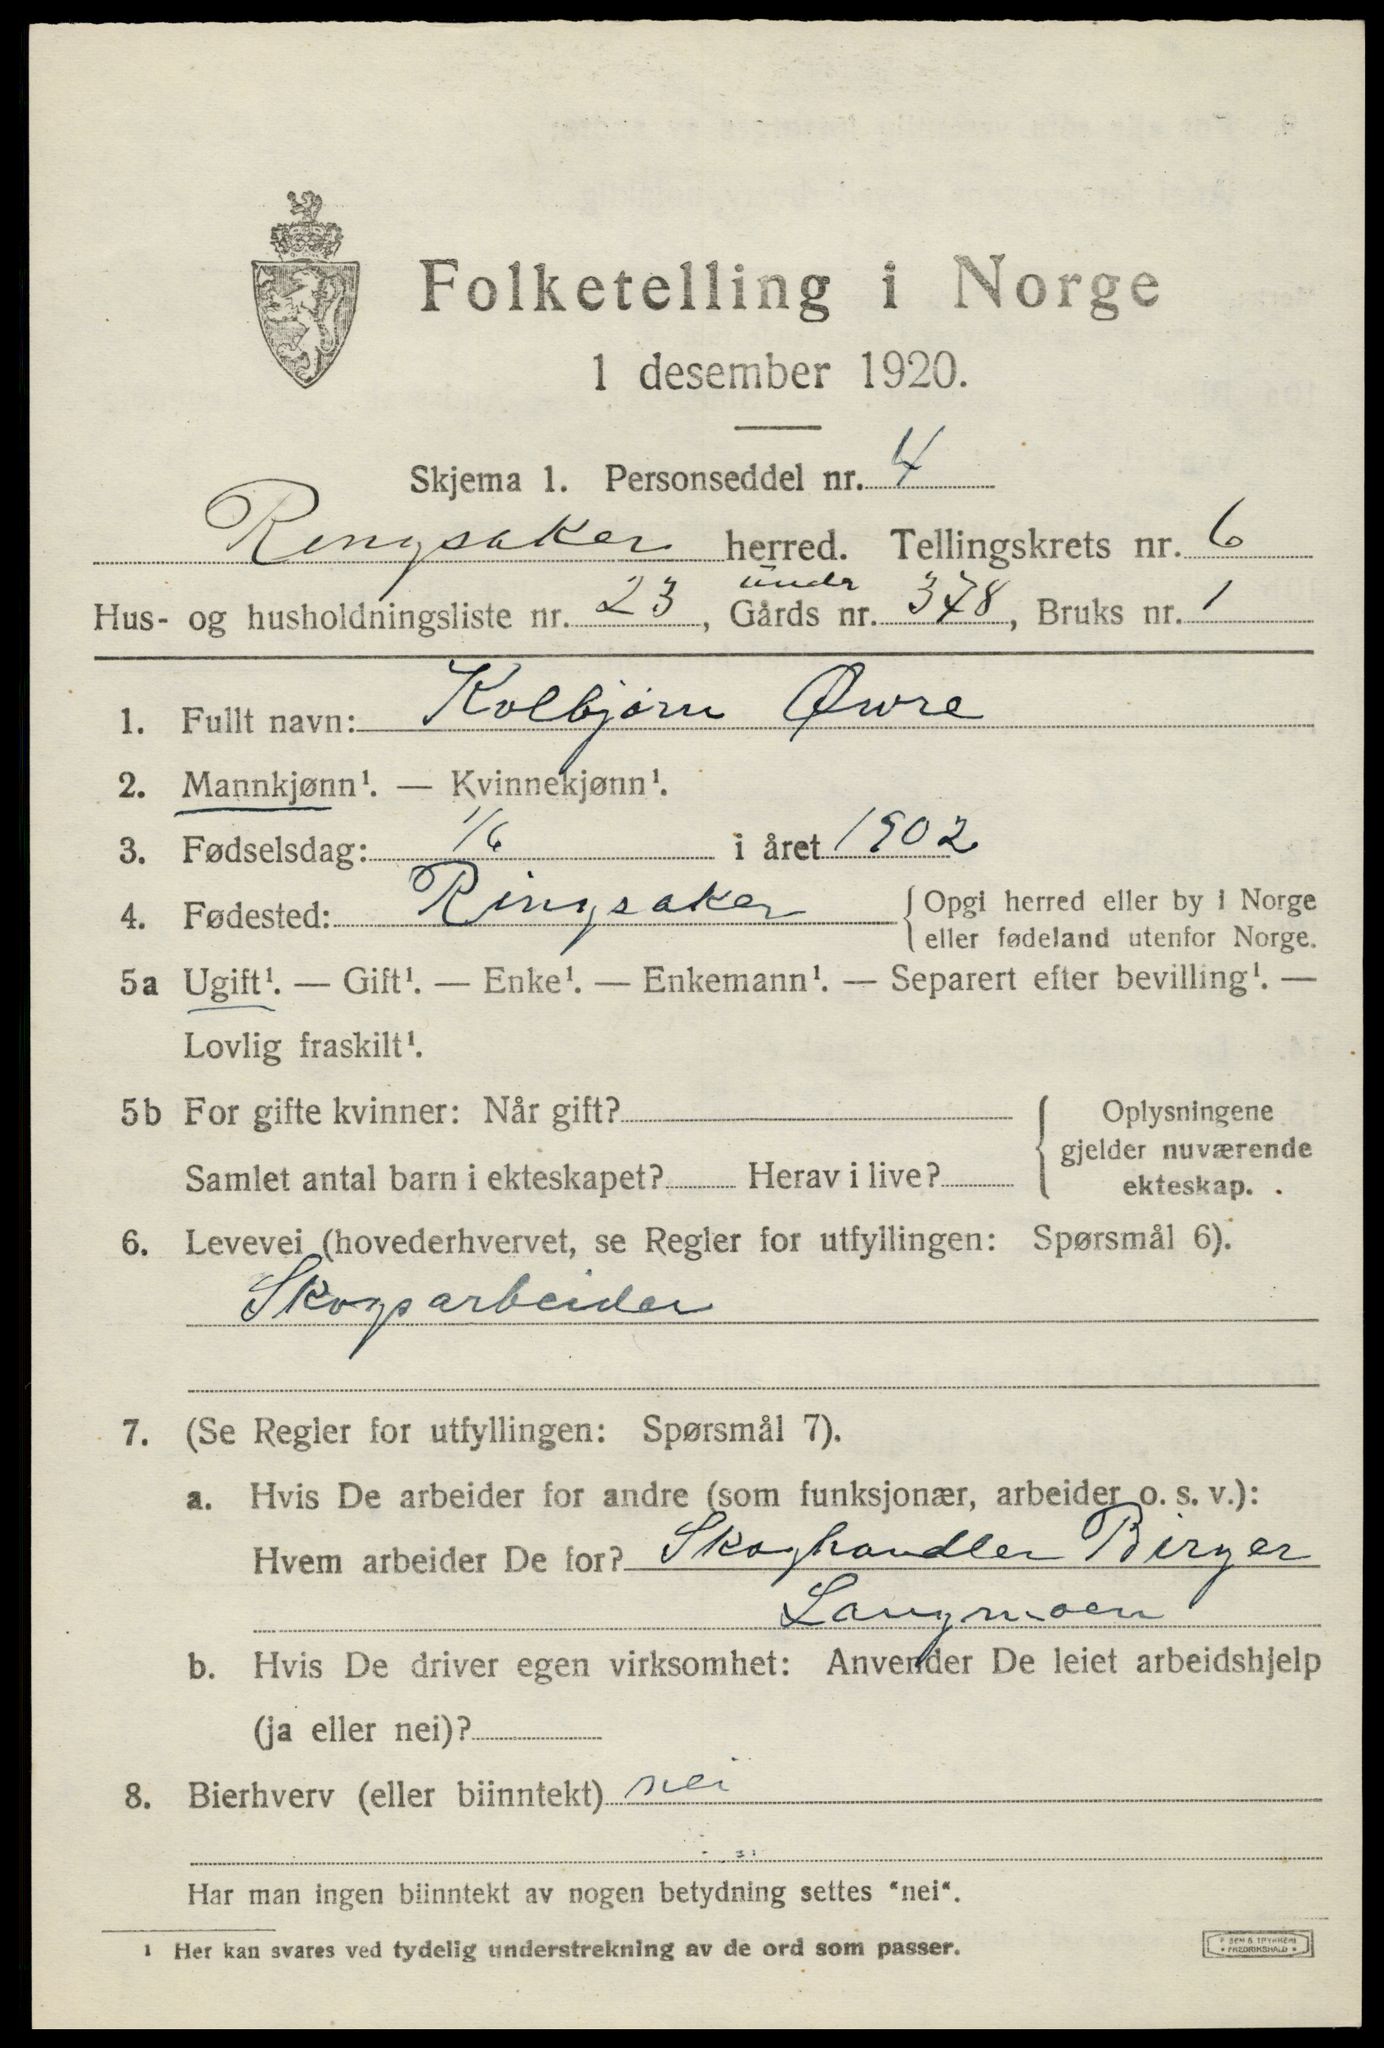 Folketelling i Norge
1 desember 1920.
Skjema 1. Personseddel nr. 4
Ringsaker herred. Tellingskrets nr. 6
Hus- og husholdningsliste nr. 23, under Gårds nr. 378, Bruks nr. 1
1. Fullt navn: Kolbjørn Øvre
2. Mannkjønn¹. — Kvinnekjønn¹.
3. Fødselsdag: 1/6 i året 1902
4. Fødested: Ringsaker {Opgi herred eller by i Norge
eller fødeland utenfor Norge.
5a Ugift¹. — Gift¹. — Enke¹. — Enkemann¹. — Separert efter bevilling¹. —
Lovlig fraskilt¹.
5b For gifte kvinner: Når gift? { Oplysningene
gjelder nuværende
Samlet antal barn i ekteskapet? Herav i live? ekteskap.
6. Levevei (hovederhvervet, se Regler for utfyllingen: Spørsmål 6).
Skogsarbeider
7. (Se Regler for utfyllingen: Spørsmål 7).
a. Hvis De arbeider for andre (som funksjonær, arbeider o. s. v.):
Hvem arbeider De for? Skoghandler Birger
Langmoen
b. Hvis De driver egen virksomhet: Anvender De leiet arbeidshjelp
(ja eller nei)?
8. Bierhverv (eller biinntekt) nei
Har man ingen biinntekt av nogen betydning settes "nei".
¹ Her kan svares ved tydelig understrekning av de ord som passer.
FREDRIKSHALD